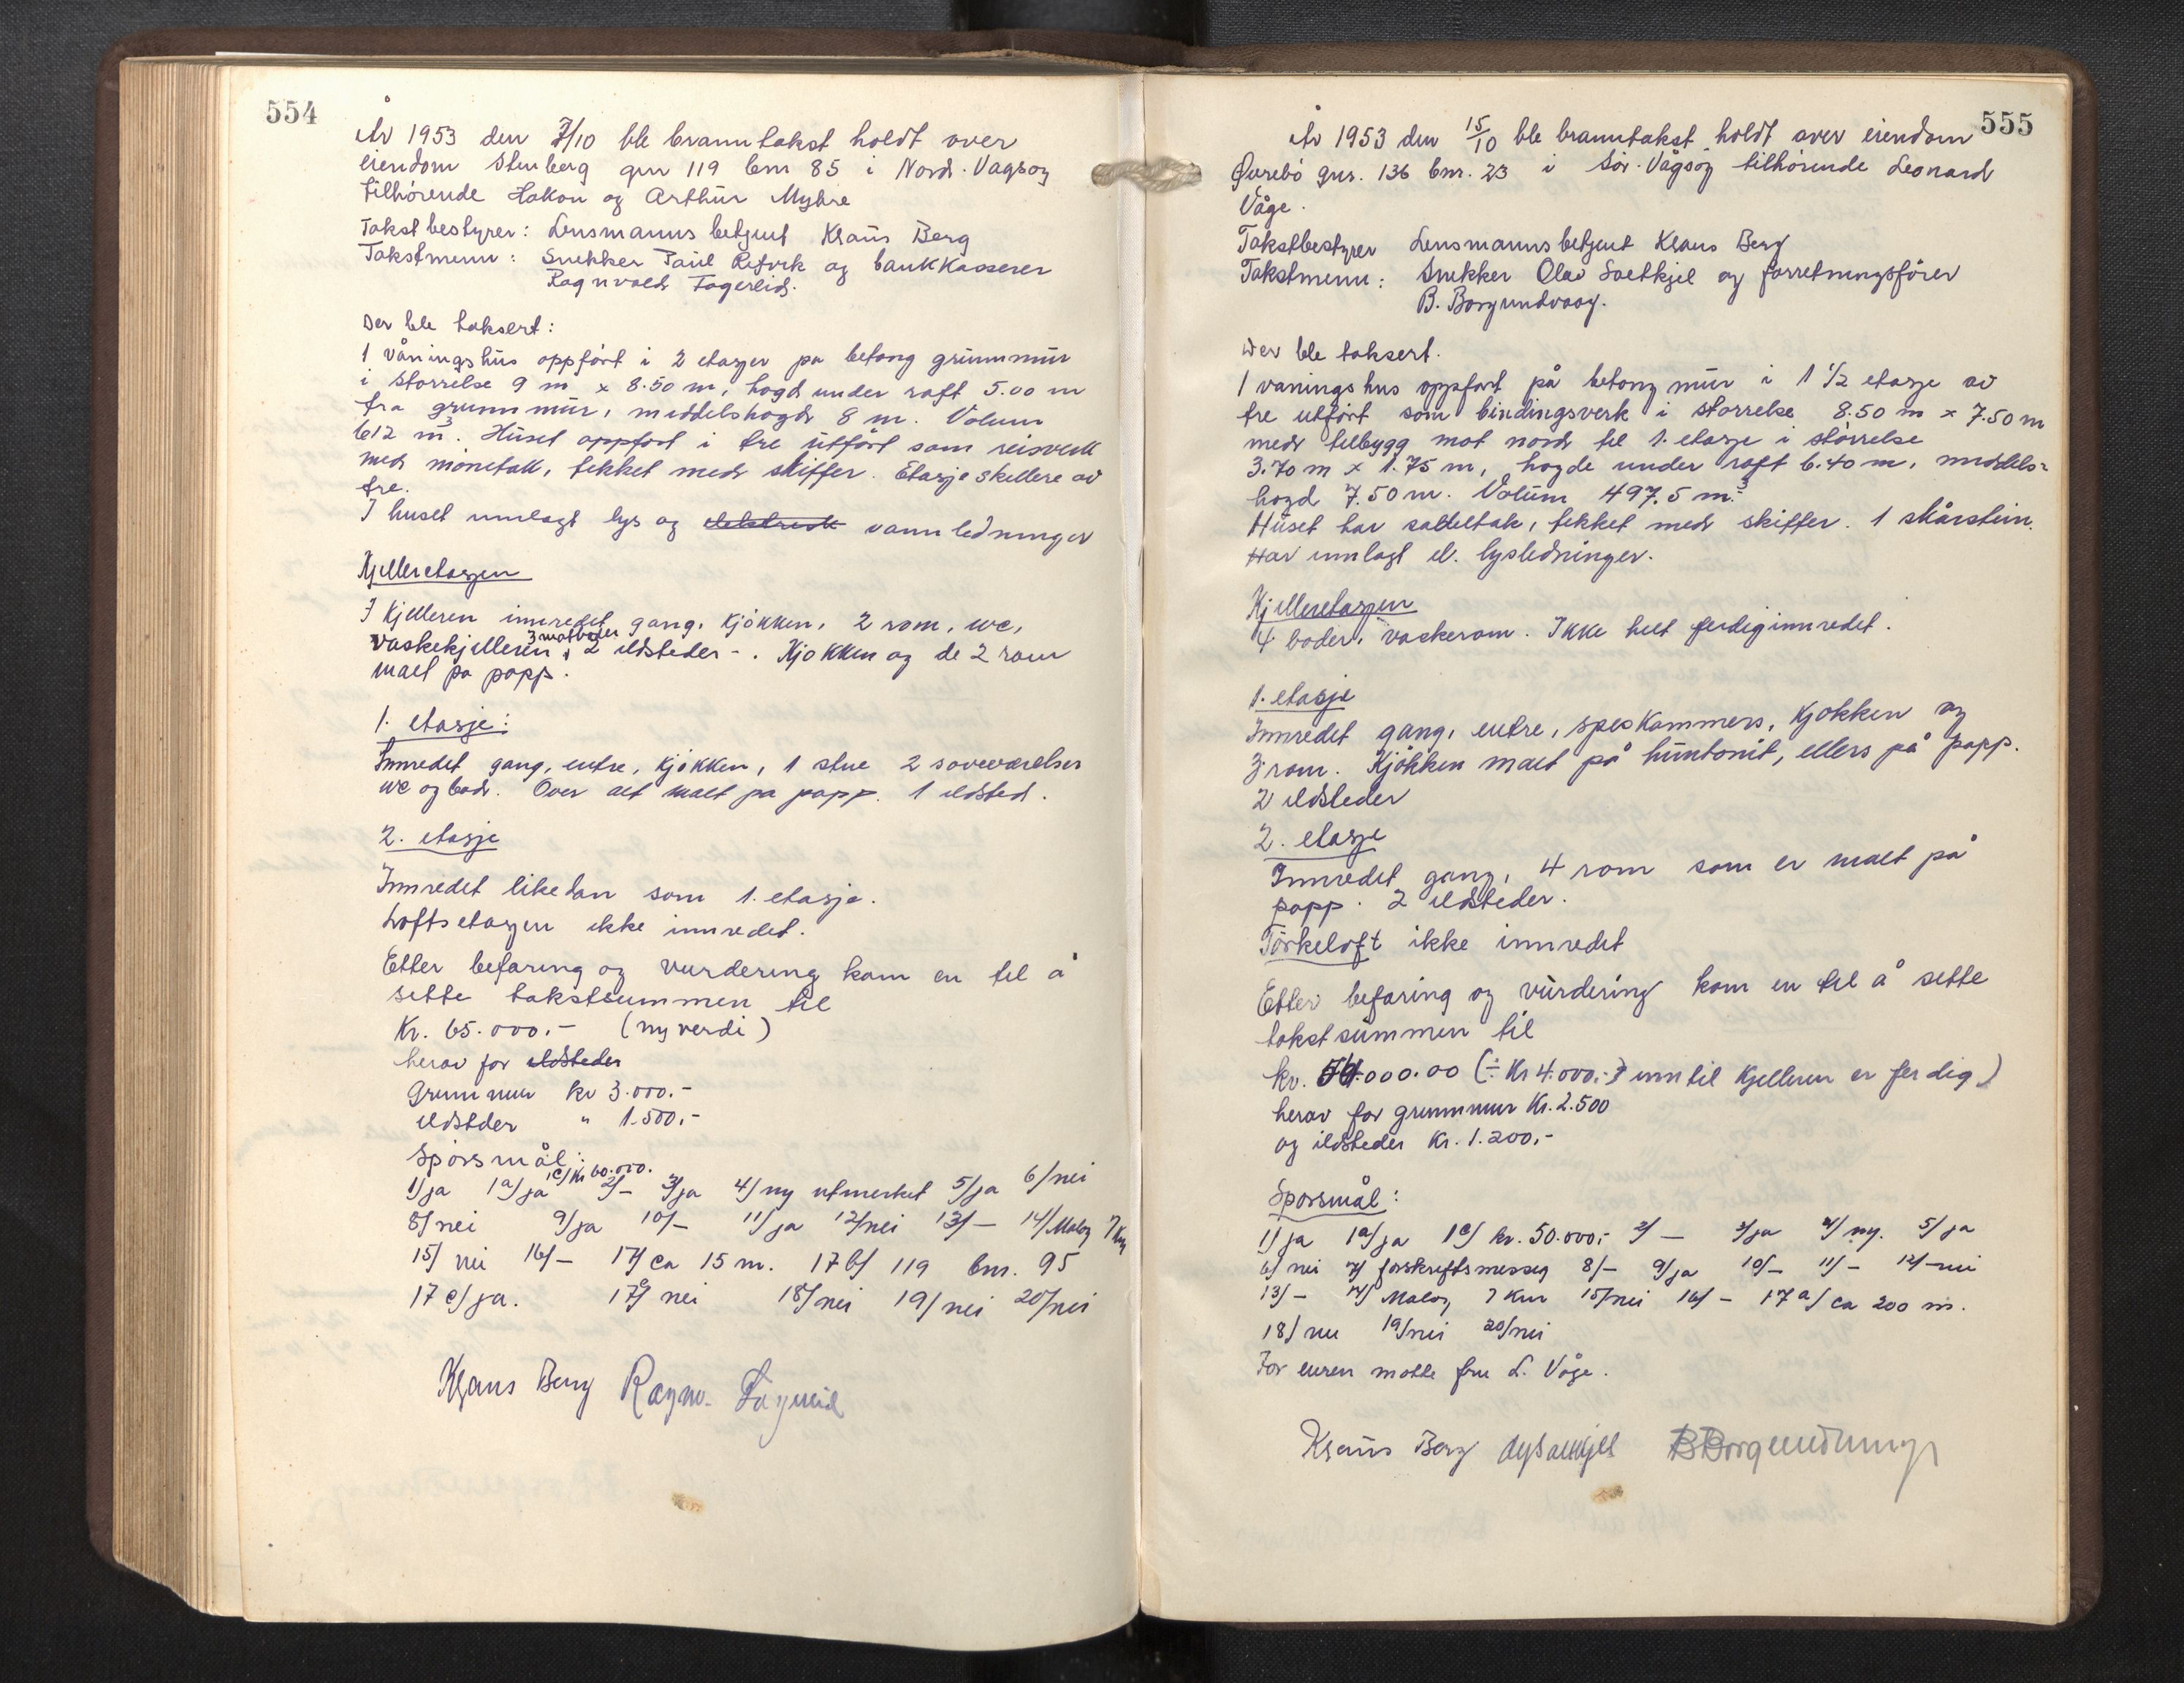 554
År 1953 den 7/10 ble branntakst holdt over
eiendom Stenberg gnr 119 bnr 85 i Nord-Vagsoy
tilhørende Hakon og Arthur Myhre
Takstbestyrer: Lensmanns betjent Klaus Berg
Takstmenn: Snekker Paul Refvik og bankkasserer
Ragnvald Fagerlid.
Der ble taksert:
1 våningshus oppført i 2 etasjer pa betong grunnmur
i størrelse 9 m x 8.50 m, høgd under raft 5.00 m
fra grunnmur, middelshøgd 8 m. Volum
612 m³. Huset oppført i tre utført som reisverk
med mønetak, tekket med skiffer. Etasjeskillere av
tre.
I huset innlagt lys og elektrisk vannledninger
Kjelleretasjen
I Kjelleren innredet gang, kjøkken, 2 rom, wc,
vaskekjelleren, 3 matboder 2 ildsteder -. Kjøkken og de 2 rom
malt pa papp.
1. etasje:
Innredet gang, entre, kjøkken, 1 stue 2 soveværelser
wc og bad. Over alt malt pa papp. 1 ildsted.
2. etasje
Innredet likedan som 1. etasje.
Loftsetasjen ikke innredet.
Etter befaring og vurdering kom en til å
sette takstsummen til
Kr. 65.000.- (nyverdi)
herav for ildsteder
Grunnmur kr 3.000.-
ildsteder " 1.500.-
Spørsmål:
1/ja 1a/ja 1c/kr 60.000. 2/- 3/ja 4/ny utmerket 5/ja 6/nei
8/nei 9/ja 10/- 11/ja 12/nei 13/- 14/Maloy 7 km
15/nei 16/- 17/ca 15 m. 17b/ 119 bnr. 95
17c/ja. 17 nei 18/nei 19/nei 20/nei
Klaus Berg Ragnv. Fagerlid
555
År 1953 den 15/10 ble branntakst holdt over eiendom
Øvrebö gnr. 136 bnr. 23 i Sör-Vågsoy tilhörende Leonard
Våge.
Takstbestyrer Lensmannsbetjent Klaus Berg
Takstmenn: Snekker Olav Saetkjel og forretningsförer
B. Borgundvaag.
Der ble taksert.
1 vaningshus oppfört på betong mur i 1 1/2 etasje av
tre utfört som bindingsverk i størrelse 8.50 m x 7.50 m
med tilbygg mot nord til 1. etasje i størrelse
3.70 m x 1.75 m, høgde under raft 6.40 m, middels-
høgd 7.50 m. Volum 497,5 m³.
Huset har saltak, tekket med skiffer. 1 skårstein.
Har innlagt el. lysledninger.
Kjelleretasjen
4 boder, vaskerom. Ikke helt ferdiginnredet.
1. etasje
Innredet gang, entre, speskammers, kjøkken og
3 rom. Kjökken malt på huntonit, ellers på papp.
2 ildsteder
2. etasje
Innredet gang, 4 rom som er malt på
papp. 2 ildsteder.
Törkeloft ikke innredet
Etter befaring og vurdering kom en til å sette
takstsummen til
kr. 54.000.00 (÷ Kr 4.000.- inntil Kjelleren er ferdig)
herav for grunnmur Kr. 2.500
og ildsteder Kr. 1.200,-
Sporsmål:
1/ja 1a/ja 1c/ kr. 50.000,- 2/ - 3/ja 4/ny. 5/ja
6/nei 7/ forskriftsmessig 8/- 9/ja 10/- 11/- 12/-nei
13/- 14/ Maloy 7 km 15/nei 16/- 17a/ ca 200 m.
18/nei 19/nei 20/nei
For eieren møtte fru L. Våge.
Klaus Berg B Borgundvaag